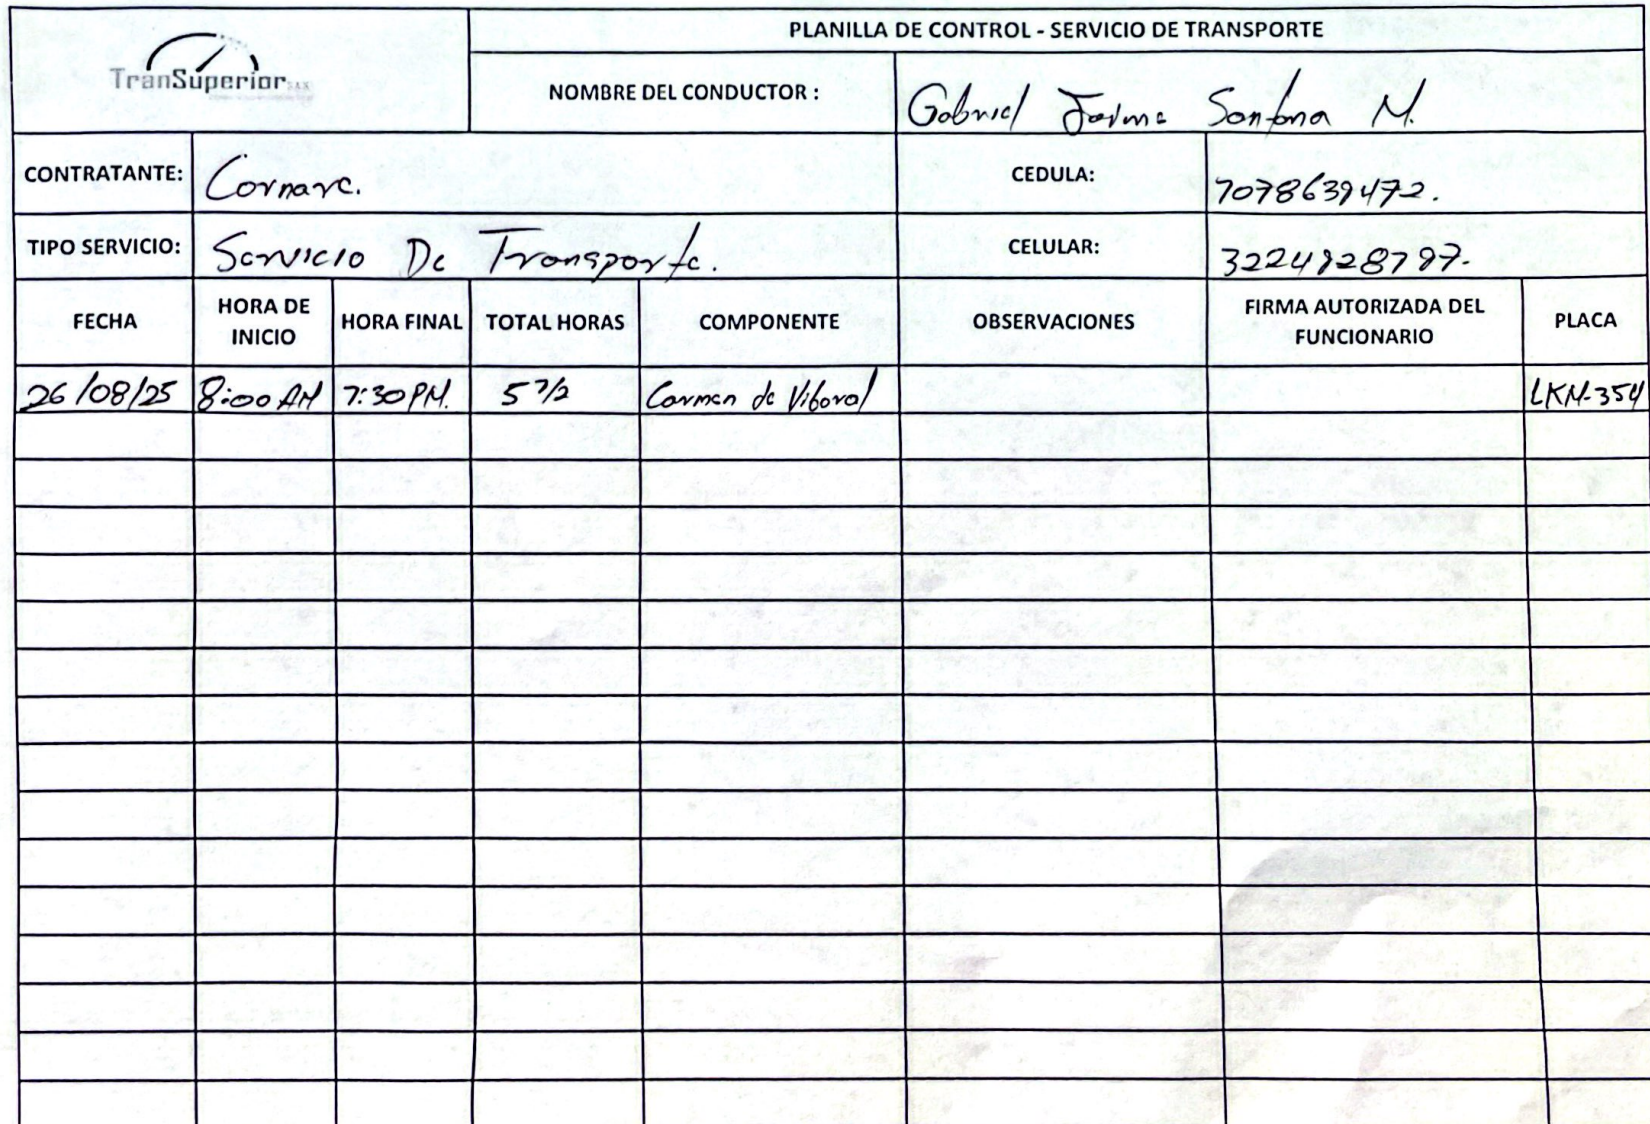 PLANILLA DE CONTROL - SERVICIO DE TRANSPORTE
TranSuperior S.A.S
NOMBRE DEL CONDUCTOR : Gabriel Jaime Santana M.
CONTRATANTE: Cornare. CEDULA: 1078639472.
TIPO SERVICIO: Servicio De Transporte. CELULAR:
FECHA HORA DE INICIO HORA FINAL TOTAL HORAS COMPONENTE OBSERVACIONES FIRMA AUTORIZADA DEL FUNCIONARIO PLACA
26/08/25 8:00 AM 1:30 PM. 5 1/2 Carmen de Viboral LKM-354